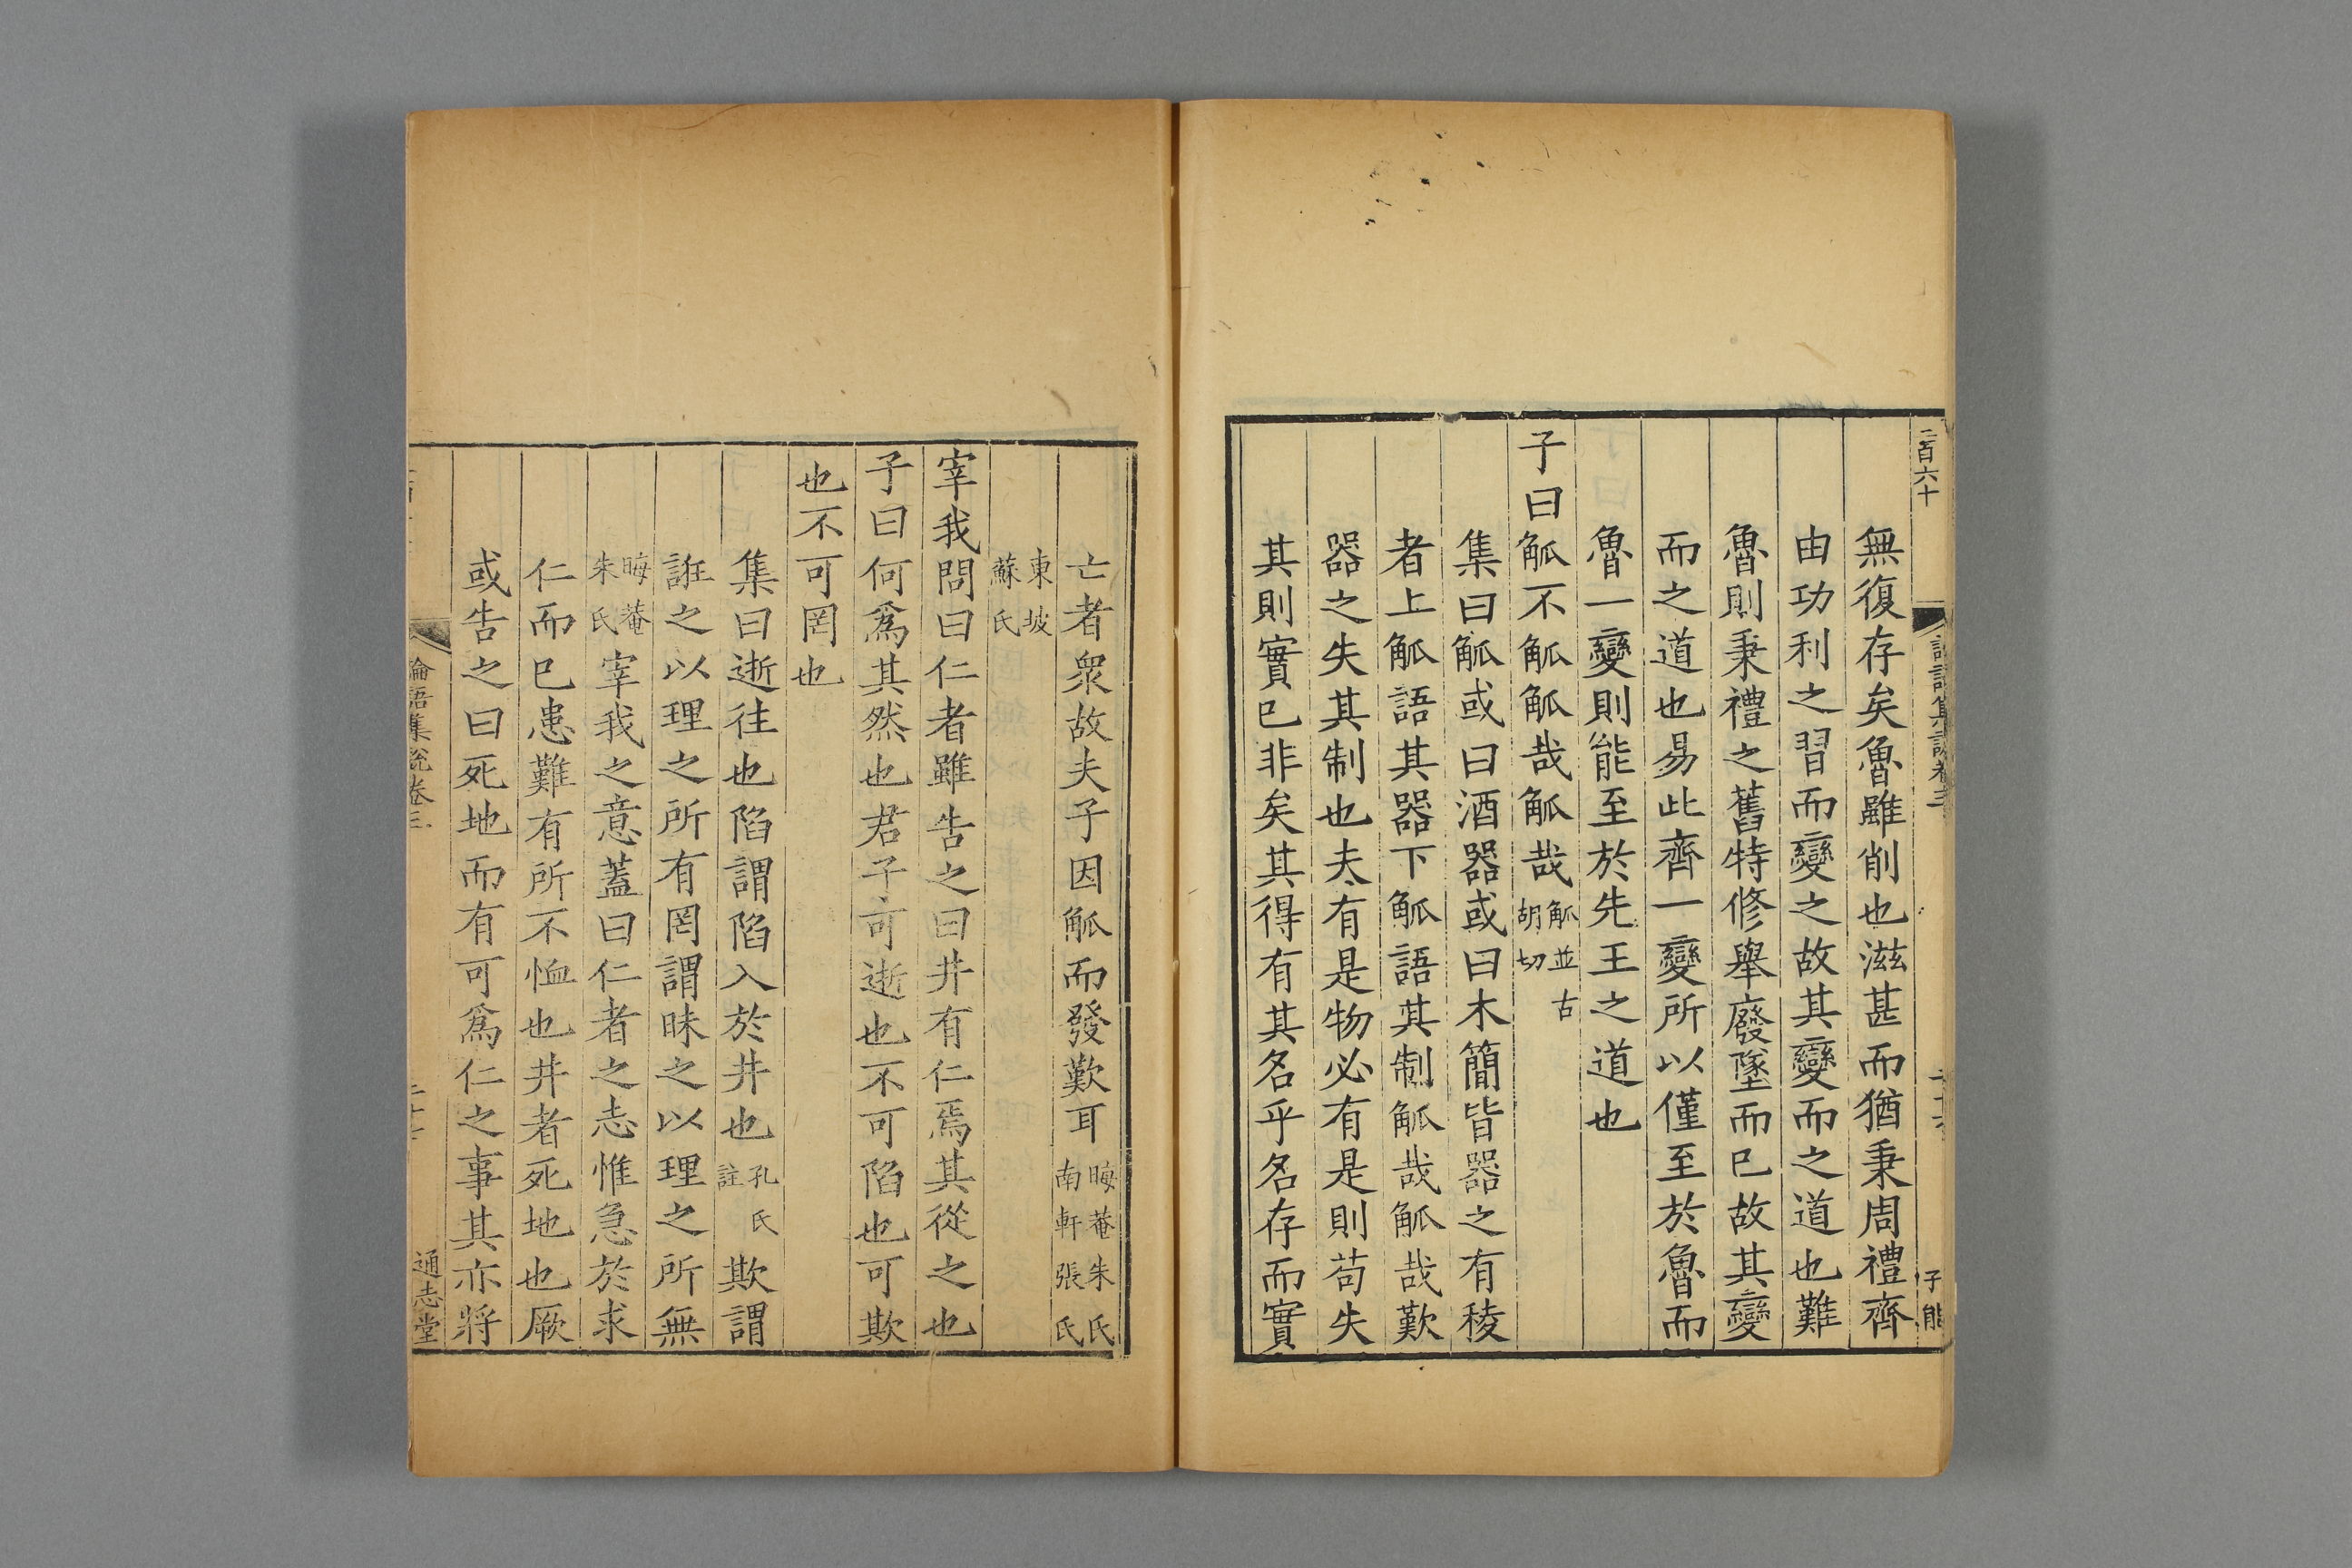 二百六十
子能
無復存矣魯雖削也滋甚而猶秉周禮齊
由功利之習而變之故其變而之道也難
魯則秉禮之舊特修舉廢墜而已故其變
而之道也易此齊一變所以僅至於魯而
魯一變則能至於先王之道也
子曰觚不觚觚哉觚哉觚並古胡切
集曰觚或曰酒器或曰木簡皆器之有稜
者上觚語其器下觚語其制觚哉觚哉歎
器之失其制也夫有是物必有是則苟失
其則實已非矣其得有其名乎名存而實
亡者衆故夫子因觚而發歎耳晦菴朱氏南軒張氏
東坡蘇氏
宰我問曰仁者雖告之曰井有仁焉其從之也
子曰何爲其然也君子可逝也不可陷也可欺
也不可罔也
集曰逝往也陷謂陷入於井也孔氏註欺謂
誑之以理之所有罔謂昧之以理之所無
晦菴朱氏宰我之意蓋曰仁者之志惟急於求
仁而已患難有所不恤也井者死地也厥
或告之曰死地而有可爲仁之事其亦將
論語集說卷三
通志堂